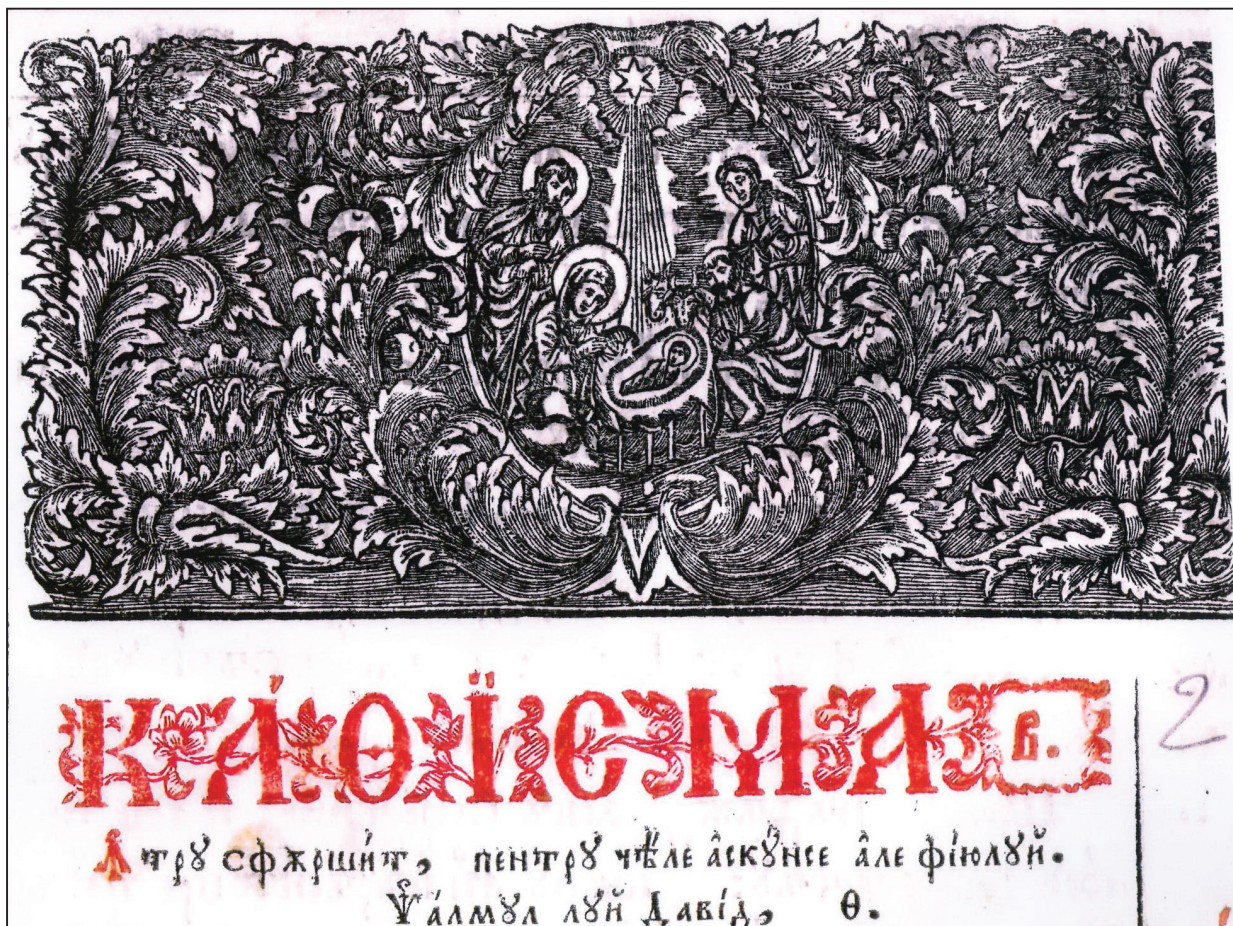 КА́ѲЇСМА в҃.
2
Ꙟтрꙋ сфѫрши́т, пентрꙋ чѣ́ле аскꙋ́нсе а́ле фі́юлꙋй.
Ѱа́лмꙋл лꙋ́й Даві́д, Ѳ.